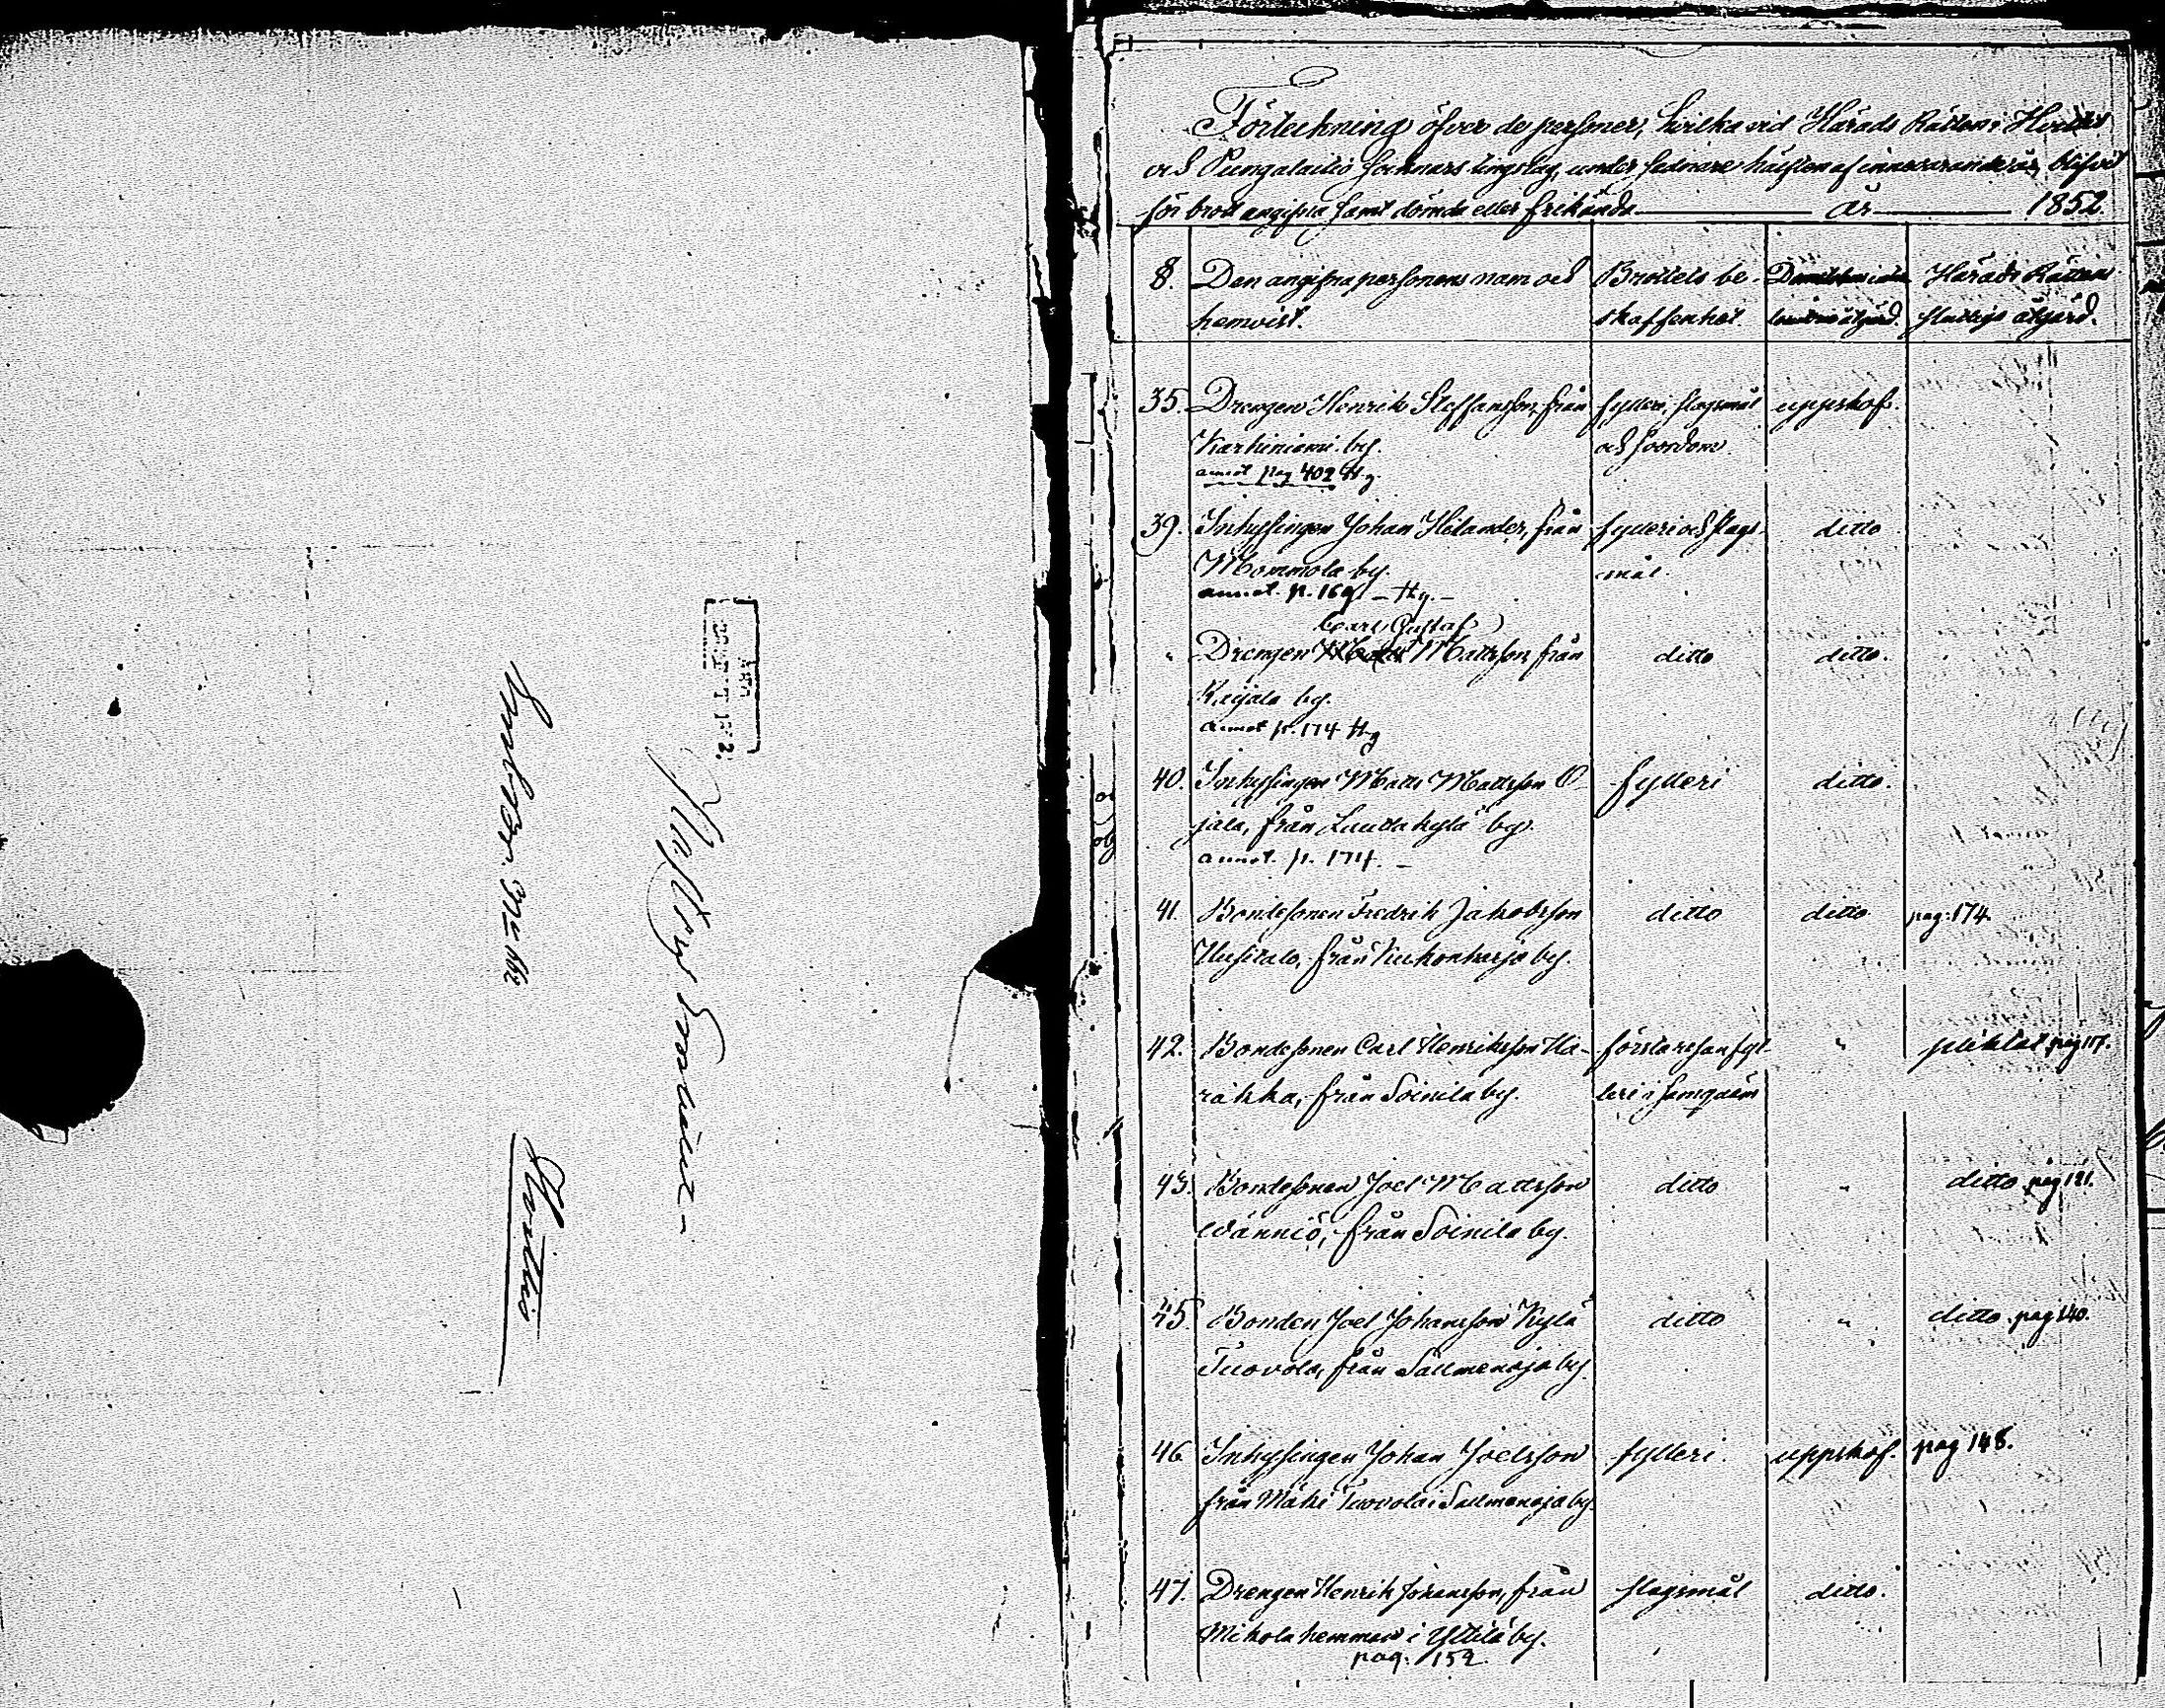 Huittis
Förteckning öfver de personer, hvilka vid Härads Rätten i Hvittis
och Pungalaitio socknars tingslag, under sednare hälften af innevarande år, blifvit
för brott angifna samt dömda eller frikända — år — 1852.
§. Den angifna personens namn och Brottets be- Härads Rättens
hemvist. skaffenhet. slutliga åtgärd.
35. Drengen Henrik Steffansson, från fylleri, slagsmål uppskof.
Karhiniemi by. och svordom.
annot pag 402 Hg.
39. Inhysingen Johan Helander, från fylleri och slags- ditto
Mommola by. mål.
annot. p. 169 – Hg. –
Carl Gustaf
" Drengen Matts Mattsson, från ditto ditto.
Raijala by.
annot p. 174 Hg
40. Inhysingen Matts Mattsson O- fylleri ditto.
jala, från Lauttakylä by.
annot. p. 174. –
41. Bondesonen Fredrik Jakobsson ditto ditto pag: 174.
Uusitalo, från Kiukonharja by.
42. Bondesonen Carl Henriksson Ha- första resan fyl- " pliktat pag 117.
rakka, från Soinila by. leri i samqväm
43. Bondesonen Joel Mattsson ditto " ditto pag 121.
Wänniö, från Soinila by.
45. Bonden Joel Johansson Kylä ditto " ditto pag 140.
Tuovola, från Sallmenoja by.
46 Inhysingen Johan Joelsson fylleri. uppskof. pag 148.
från Mäki Tuovola i Sallmenoja by.
47. Drengen Henrik Johansson, från slagsmål ditto.
Mikola hemman i Yttilä by.
pag. 152.